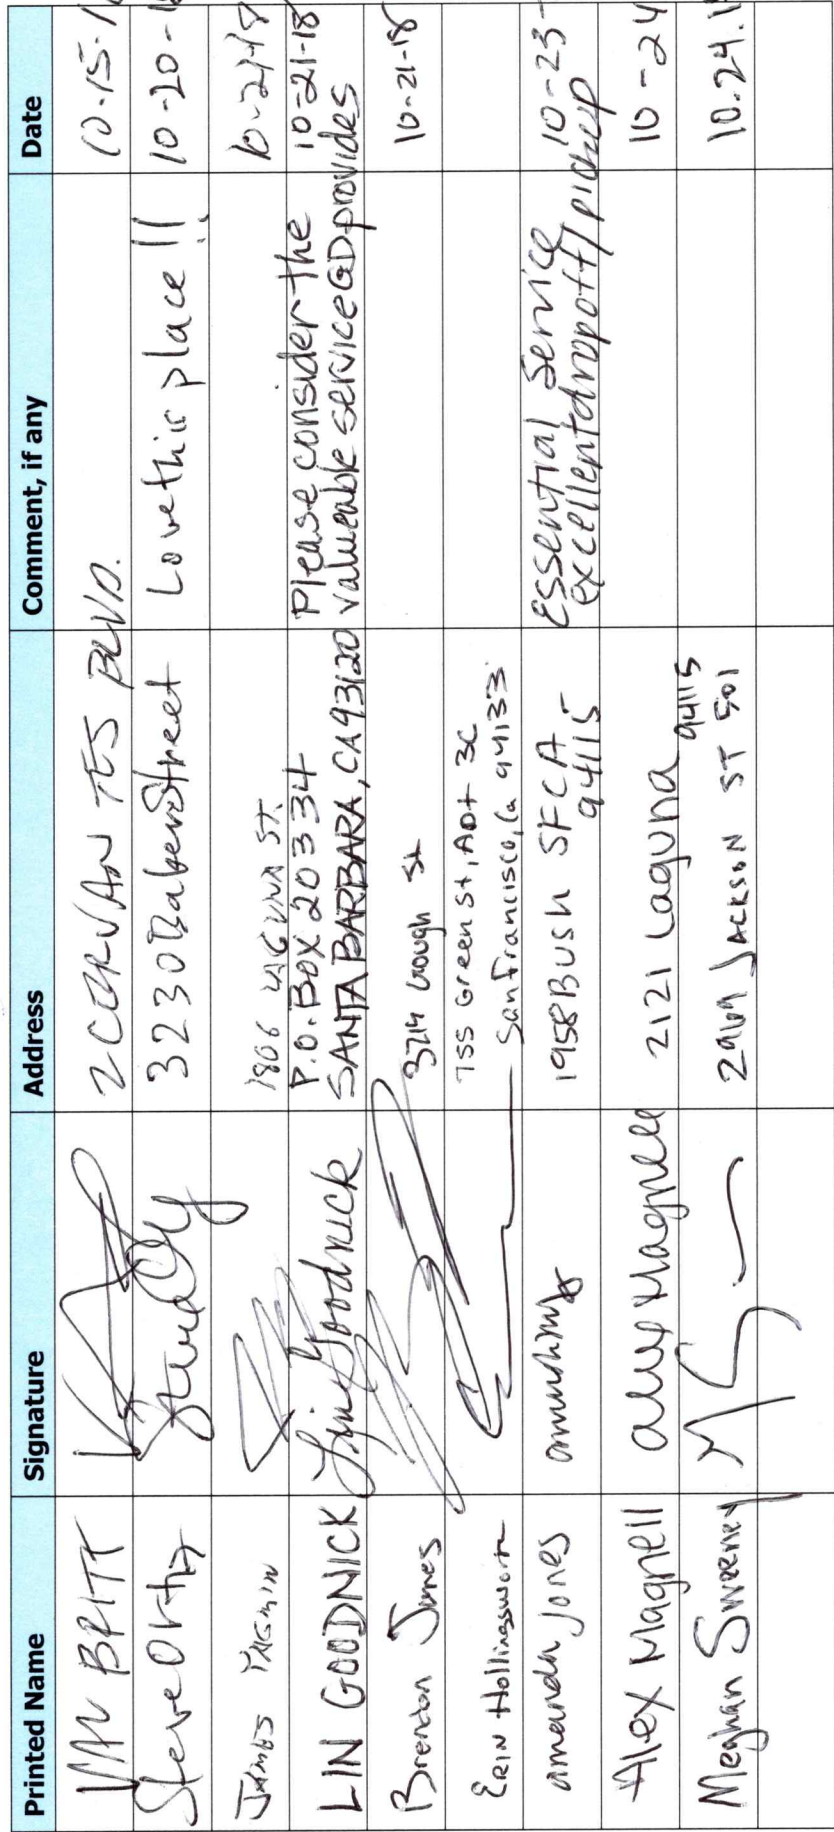 Printed Name Signature Address Comment, if any Date
VAN BRITT 2 CERVANTES BLVD. 10-15-1
Steve Ortiz 3230 Baker Street Love this place!! 10-20-1
JAMES 1806 LAGUNA ST. 10-21-18
LIN GOODNICK Lin Goodnick P.O. BOX 20334 Please consider the 10-21-18
SANTA BARBARA, CA 93120 valueable service GD provides
Brendan Jones 3714 Gough St 10-21-18
ERIN Hollingsworth 755 Green St, Apt 3C
San Francisco, Ca 94133
amanda jones 1958 BUSH SF CA Essential Service 10-23-
94115 excellent dropoff/pickup
Alex Magnell Alex Magnell 2121 Laguna 10-24
94115
Meghan Sweeney MS JACKSON ST 501 10.24.1